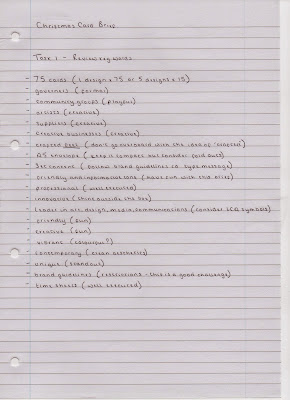 Christmas Card Brief
Task 1 - Review key words
- 75 cards (1 design x 75 or 5 designs x 15)
- governors (formal)
- community groups (playful)
- artists (creative)
- suppliers (creative)
- creative businesses (creative)
- crafted feel (don't go overboard with the idea of 'crafted')
- A5 envelope (keep it compact but consider fold outs)
- Set content (follow brand guidelines i.e. type message)
- friendly and informal tone (have fun with this brief)
- professional (well executed)
- innovative (think outside the box)
- leader in art, design, media, communications (consider LCA symbols)
- friendly (fun)
- creative (fun)
- vibrant (colourful?)
- contemporary (clean aesthetics)
- unique (standout)
- brand guidelines (restrictions - this is a good challenge)
- time sheet (well executed)